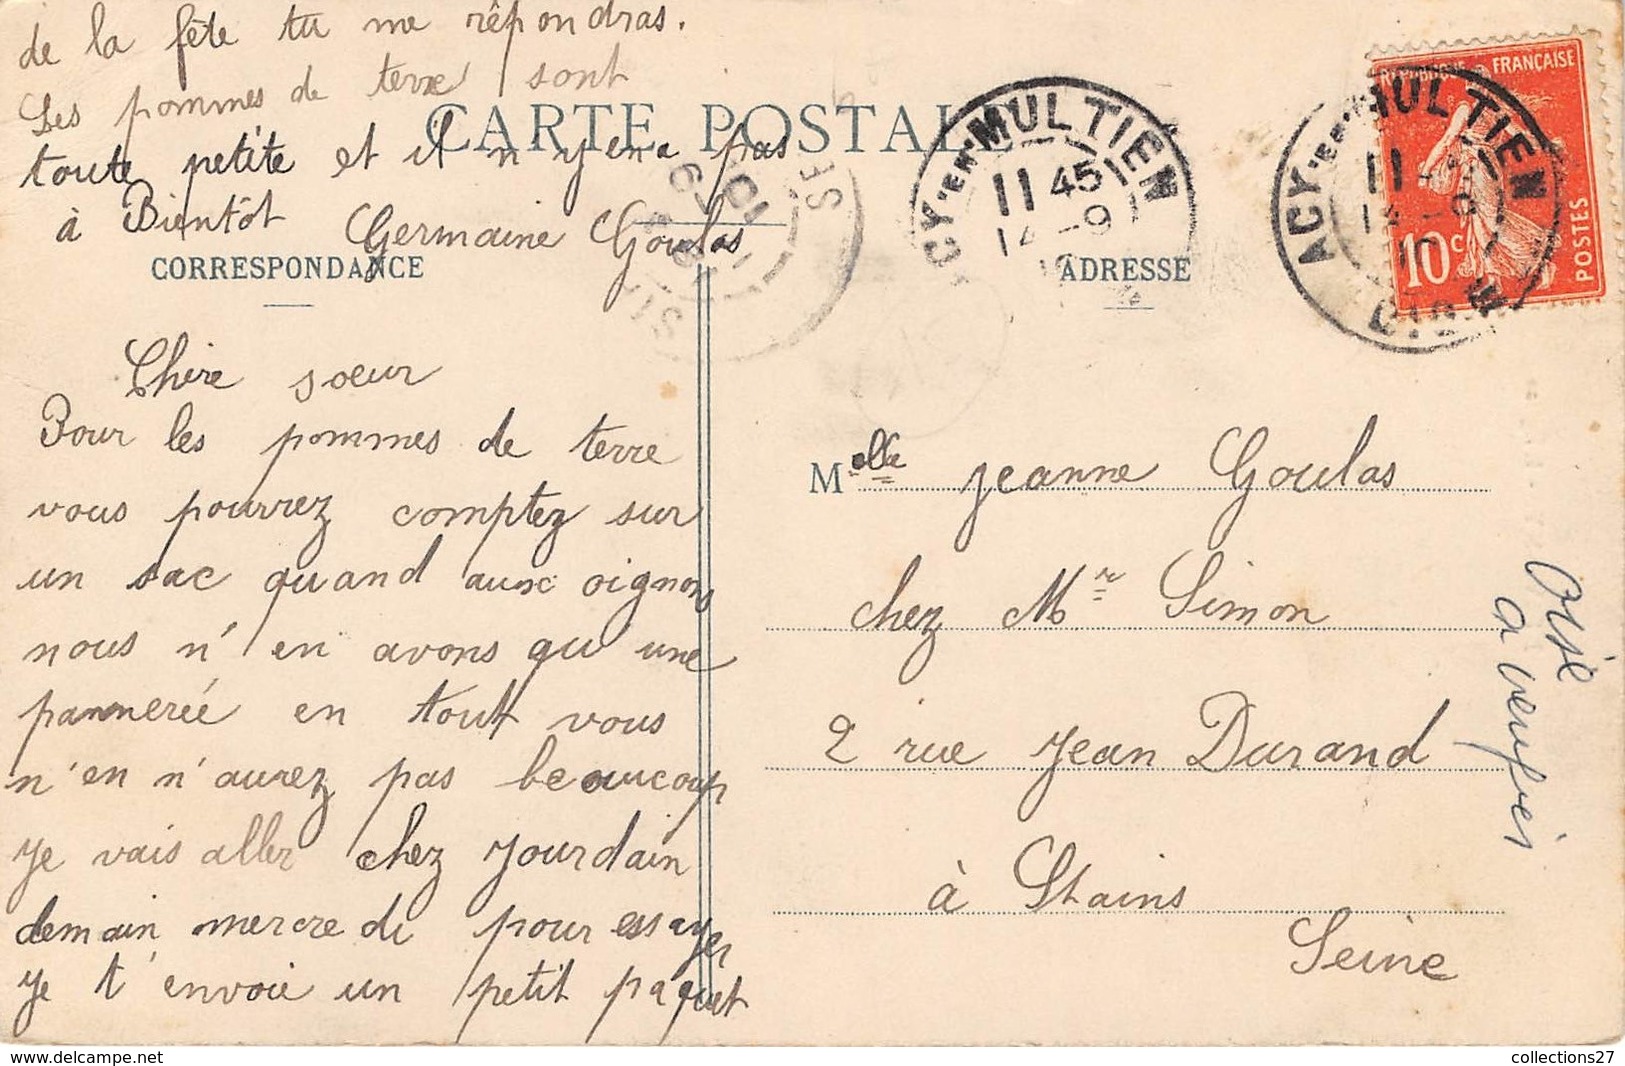 de la fête tu me rêpondras.
Les pommes de terre sont
toute petite et il n'y en a pas
à Bientôt Germaine Goulas
CARTE POSTALE
CORRESPONDANCE
ADRESSE
Chère soeur
Pour les pommes de terre
vous pourrez comptez sur
un sac quand aux oignons
nous n'en avons qu'une
pannerée en tout vous
n'en n'aurez pas beaucoup
Je vais aller chez Jourdain
demain mercredi pour essayer
je t'envoie un petit paquet
ACY-EN-MULTIEN
11 45
14 -9
ACY-EN-MULTIEN
OISE
11
14 -9
RÉPUBLIQUE FRANÇAISE
10c
POSTES
Melle Jeanne Goulas
chez Mr Simon
2 rue Jean Durand
à Stains
Seine
Oise
collections27